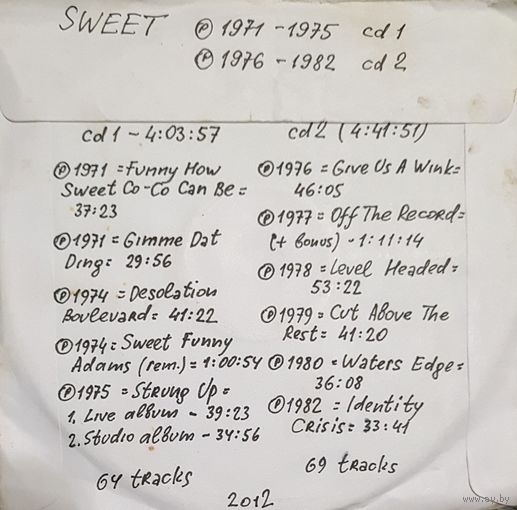 SWEET ℗ 1971 - 1975 cd 1
℗ 1976 - 1982 cd 2
cd 1 - 4:03:57
℗ 1971 = Funny How
Sweet Co-Co Can Be =
37:23
℗ 1971 = Gimme Dat
Ding = 29:56
℗ 1974 = Desolation
Boulevard = 41:22
℗ 1974 = Sweet Funny
Adams (rem.) = 1:00:54
℗ 1975 = Strung Up =
1. Live album - 39:23
2. Studio album - 34:56
64 tracks
cd 2 (4:41:51)
℗ 1976 = Give Us A Wink =
46:05
℗ 1977 = Off The Record =
(+ bonus) - 1:11:14
℗ 1978 = Level Headed =
53:22
℗ 1979 = Cut Above The
Rest = 41:20
℗ 1980 = Waters Edge =
36:08
℗ 1982 = Identity
Crisis = 33:41
69 tracks
2012
www.ay.by